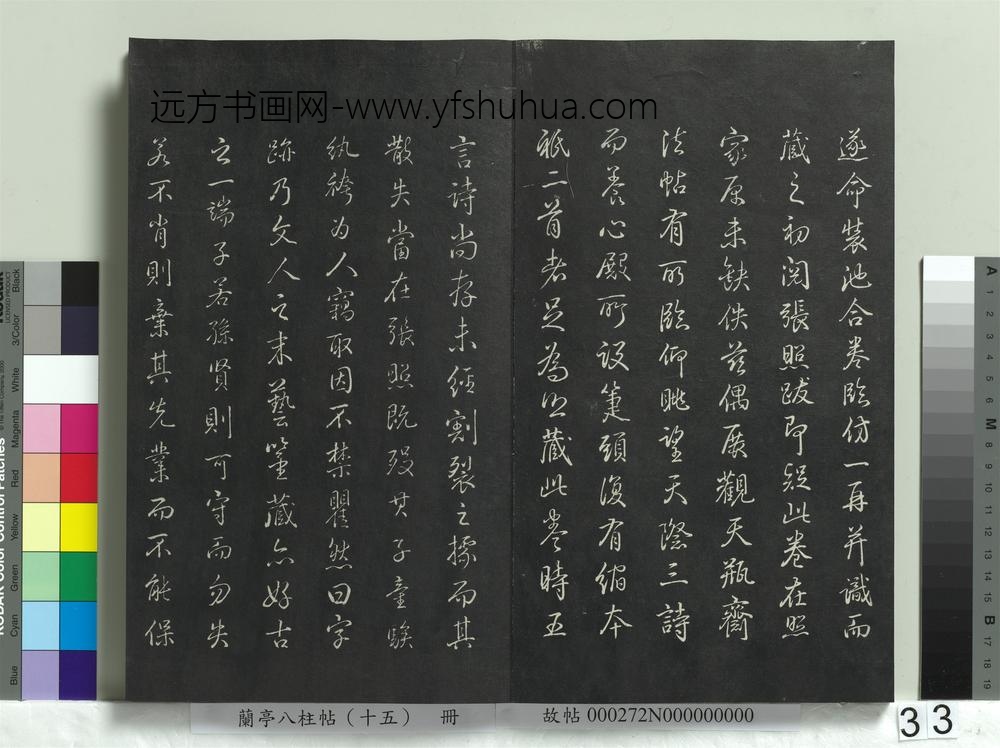 远方书画网-www.yfshuhua.com
遂命裝池合卷臨仿一再并識而
藏之初閱張照跋即疑此卷在照
家原未缺佚茲偶展觀天瓶齋
法帖有所臨仰眺望天際三詩
而養心殿所設箑頭復有縮本
祇二首者足為照藏此卷時五
言詩尚存未經割裂之據而其
散失當在張照既歿其子童騃
紈袴为人竊取因不禁瞿然曰字
跡乃文人之末藝鑒藏亦好古
之一端子若孫賢則可守而勿失
若不肖則棄其先業而不能保
蘭亭八柱帖（十五） 冊
故帖 000272N000000000
33
KODAK Color Control Patches
LICENSED PRODUCT
Black
3/Color
White
Magenta
Red
Yellow
Green
Cyan
Blue
A
1
2
3
4
5
6
M
8
9
10
11
12
13
14
15
B
17
18
19